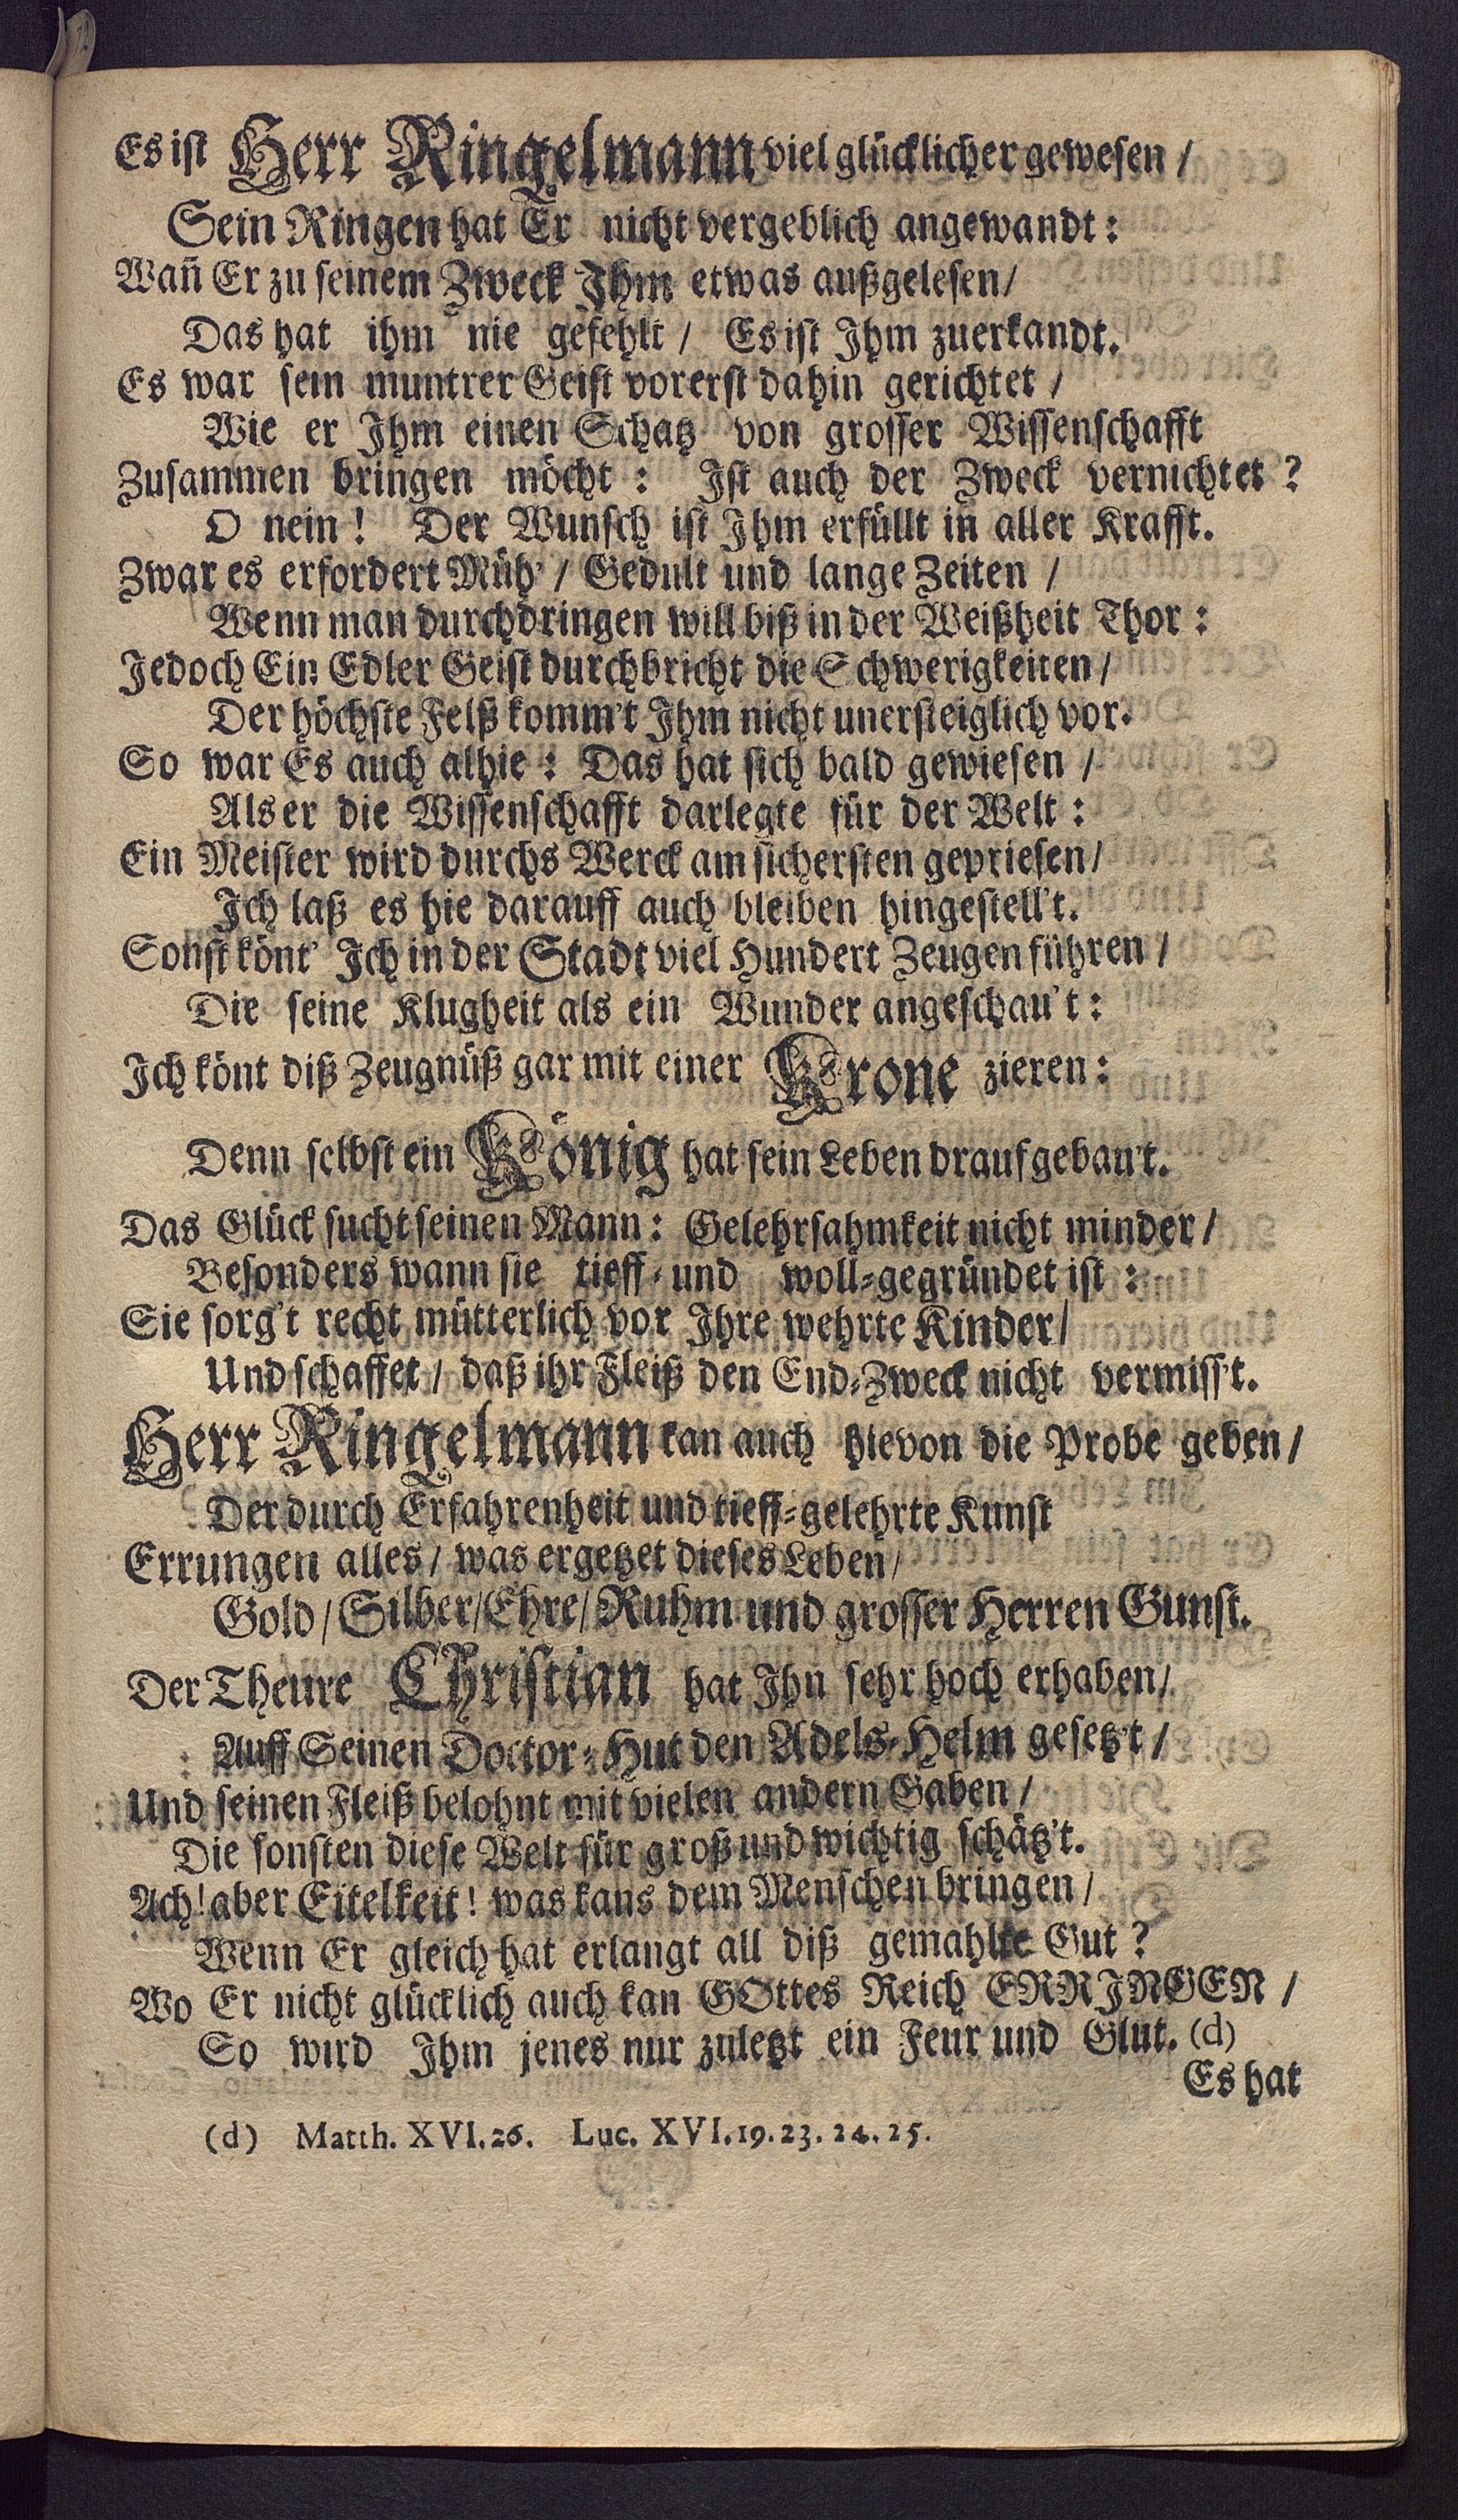 Es ist Herr Ringelmann viel glücklicher gewesen /
Sein Ringen hat Er nicht vergeblich angewandt:
Wañ Er zu seinem Zweck Ihm etwas außgelesen /
Das hat ihm nie gefehlt / Es ist Ihm zuerkandt.
Es war sein muntrer Geist vorerst dahin gerichtet /
Wie er Ihm einen Schatz von grosser Wissenschafft
Zusammen bringen möcht: Ist auch der Zweck vernichtet?
O nein! Der Wunsch ist Ihm erfüllt in aller Krafft.
Zwar es erfordert Müh' / Gedult und lange Zeiten /
Wenn man durchdringen will biß in der Weißheit Thor:
Jedoch Ein Edler Geist durchbricht die Schwerigkeiten /
Der höchste Felß komm't Ihm nicht unersteiglich vor.
So war Es auch alhie: Das hat sich bald gewiesen /
Als er die Wissenschafft darlegte für der Welt:
Ein Meister wird durchs Werck am sichersten gepriesen /
Ich laß es hie darauff auch bleiben hingestell't.
Sonst könt' Ich in der Stadt viel Hundert Zeugen führen /
Die seine Klugheit als ein Wunder angeschau't:
Ich könt diß Zeugnüß gar mit einer Krone zieren:
Denn selbst ein König hat sein Leben drauf gebau't.
Das Glück sucht seinen Mann: Gelehrsahmkeit nicht minder /
Besonders wann sie tieff- und woll-gegründet ist:
Sie sorg't recht mütterlich vor Ihre wehrte Kinder /
Und schaffet / daß ihr Fleiß den End-Zweck nicht vermiss't.
Herr Ringelmann kan auch hievon die Probe geben /
Der durch Erfahrenheit und tieff-gelehrte Kunst
Errungen alles / was ergetzet dieses Leben /
Gold / Silber / Ehre / Ruhm und grosser Herren Gunst.
Der Theure Christian hat Ihn sehr hoch erhaben /
Auff Seinen Doctor-Hut den Adels-Helm gesetz't /
Und seinen Fleiß belohnt mit vielen andern Gaben /
Die sonsten diese Welt für groß und wichtig schätz't.
Ach! aber Eitelkeit! was kans dem Menschen bringen /
Wenn Er gleich hat erlangt all diß gemahlte Gut?
Wo Er nicht glücklich auch kan GOttes Reich ERRINGEN /
So wird Ihm jenes nur zuletzt ein Feur und Glut. (d)
Es hat
(d) Matth. XVI. 26. Luc. XVI. 19. 23. 24. 25.